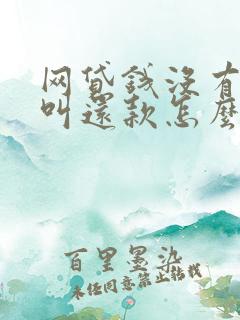 网贷钱没有
叫还款怎么
百里墨染
未经同意禁止转载